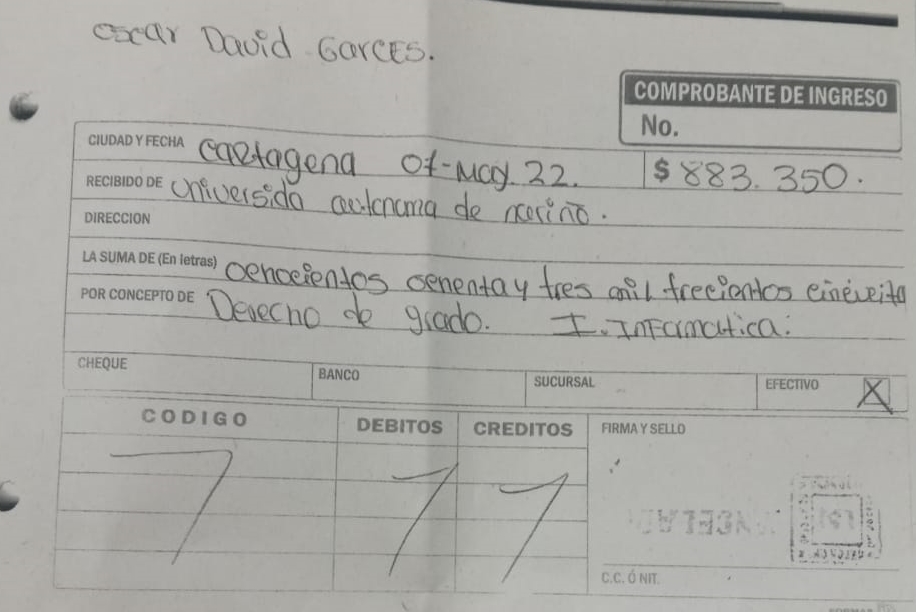 oscar David GarcES.
COMPROBANTE DE INGRESO
No.
CIUDAD Y FECHA cartagena 07-May. 22. $ 883.350.
RECIBIDO DE Universida autonoma de nariño.
DIRECCION
LA SUMA DE (En letras) ochocientos ochenta y tres mil trecientos cincueita
POR CONCEPTO DE Derecho de grado. I. Informatica.
CHEQUE BANCO SUCURSAL EFECTIVO X
CODIGO DEBITOS CREDITOS FIRMA Y SELLO
C.C. Ó NIT.